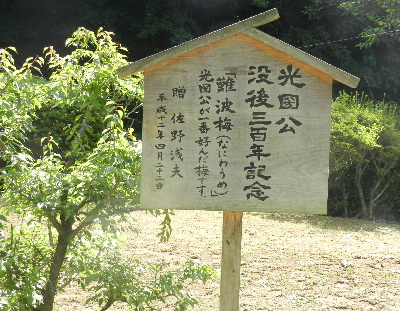 光国公
没後三百年記念
「難波梅(なにわうめ)」
光国公が一番好んだ梅です。
贈 佐野浅夫
平成十二年四月二十二日